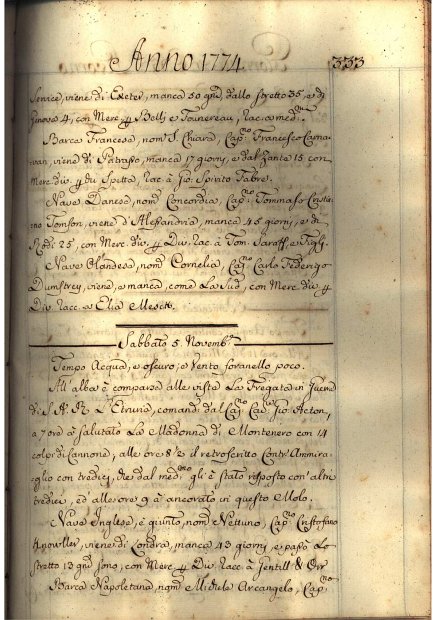 Anno 1774
333
Jenvice, viene di Exeter, manca 50 gni, dallo stretto 35, e di
Genova 4, con Merc. p Bell, e Tounereau, Rac. a medmi
Barca Francese, nom. S. Chiara, Capno Francesco Carna
van, viene di Patrasso, manca 17 giorni, e dal Zante 15 con
Merc. div. p di Spetta, Rac. à Gio: Spirito Fabre.
Nave Danese, nom. Concordia, Capno Tommaso Cristia
no Tomson, viene d'Alessandria, manca 45 giorni, e di
Rodi 25, con Merc. div. p Div. Rac. à Tom. Saroff, e Figli.
Nave Olandese, nom. Cornelia, Capno Carlo Federigo
Dumstrey, viene, e manca, come La Sud., con Merc. div. p
Div. Racc. a Elia
Sabbato 5. Novembe
Tempo Acqua, e oscuro, e Vento foranello poco.
All'alba è comparsa alle vista La Fregata in Guerra
di S. A. R. L'Etruria, comand. dal Capno Cavre Gio: Acton,
a 7 ore à salutato La Madonna di Montenero con 14
colpi di Cannone, alle ore 8 e il retroscritto Contr'Ammira
glio con tredici, che dal medmo gli è stato risposto con altri
tredici, ed alle ore 9 à ancorato in questo Molo.
Nave Inglese, è giunto, nom. Nettuno, Capno Cristofano
Knowller, viene di Londra, manca 43 giorni, e passo Lo
stretto 13 gni sono, con Merc. p Div. Racc. à Gentill & Orr
Barca Napoletana, nom. Michiele Arcangelo, Capno